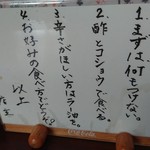 1.まずは何もつけない。
2.酢とコショウで食べる。
3.辛さがほしい方はラー油を。
4.お好みの食べ方でどうぞ。
以上
店主